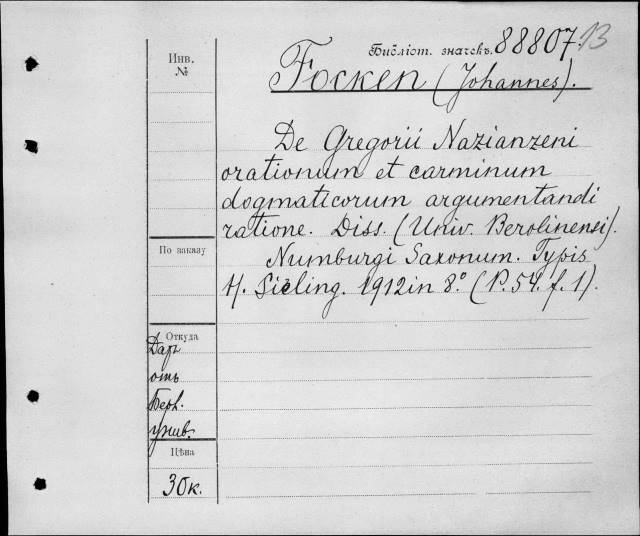 Библіот. значекъ. 88807. 13
Инв.
№
Focken (Johannes).
De Gregorii Nazianzeni
orationum et carminum
dogmaticorum argumentandi
ratione. Diss. (Univ. Berolinensi).
По заказу
Numburgi Saxonum. Typis
H. Sieling. 1912 in 8° (P. 54. f. 1).
Откуда
Даръ
отъ
Берл.
унив.
Цѣна
30к.